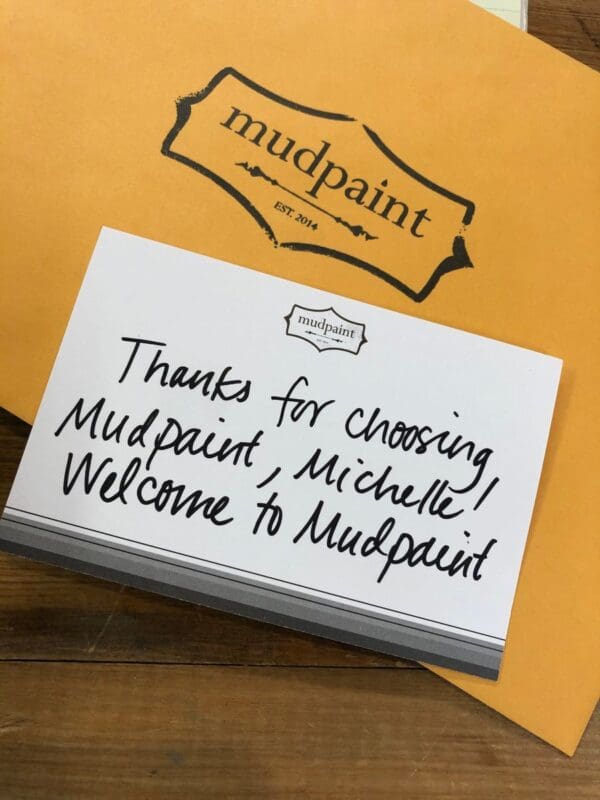 mudpaint
EST. 2014
mudpaint
Thanks for choosing
Mudpaint, Michelle!
Welcome to Mudpaint